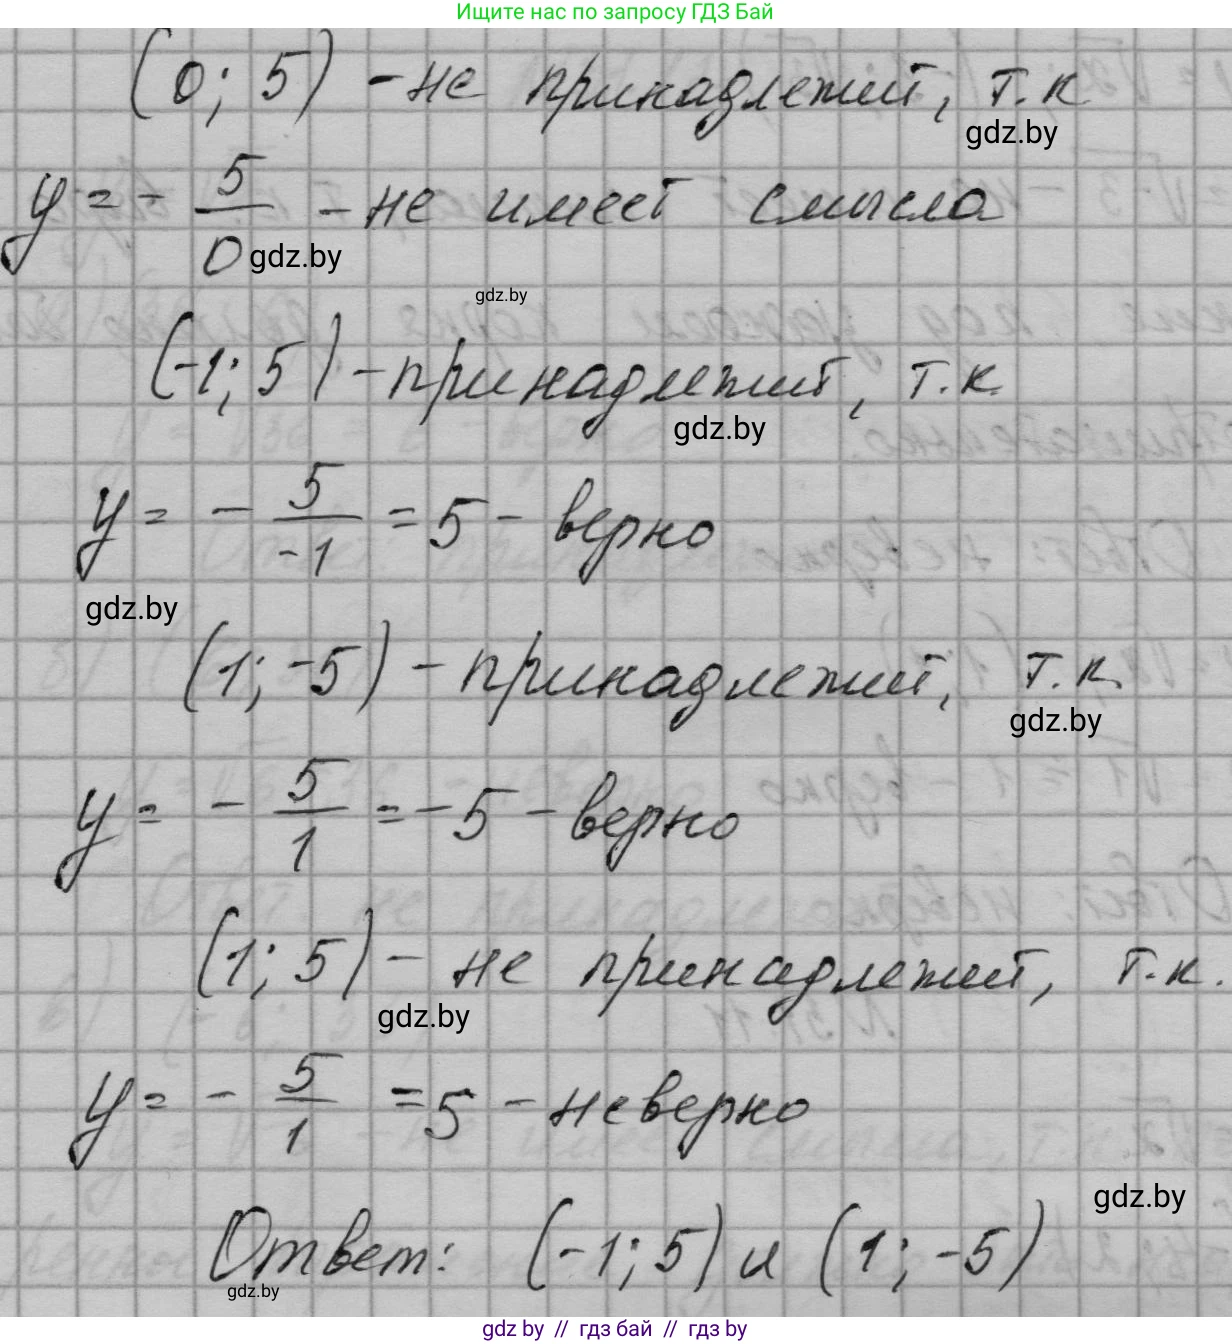 Ищите нас по запросу ГДЗ Бай
(0; 5) - не принадлежит, т.к
gdz.by
y = - 5/0 - не имеет смысла
gdz.by
gdz.by
(-1; 5) - принадлежит, т.к.
gdz.by
y = - 5/-1 = 5 - верно
gdz.by
(1; -5) - принадлежит, т.к.
gdz.by
y = - 5/1 = -5 - верно
(1; 5) - не принадлежит, т.к.
gdz.by
y = - 5/1 = 5 - неверно
gdz.by
Ответ: (-1; 5) и (1; -5)
gdz.by
gdz.by // гдз бай // gdz.by